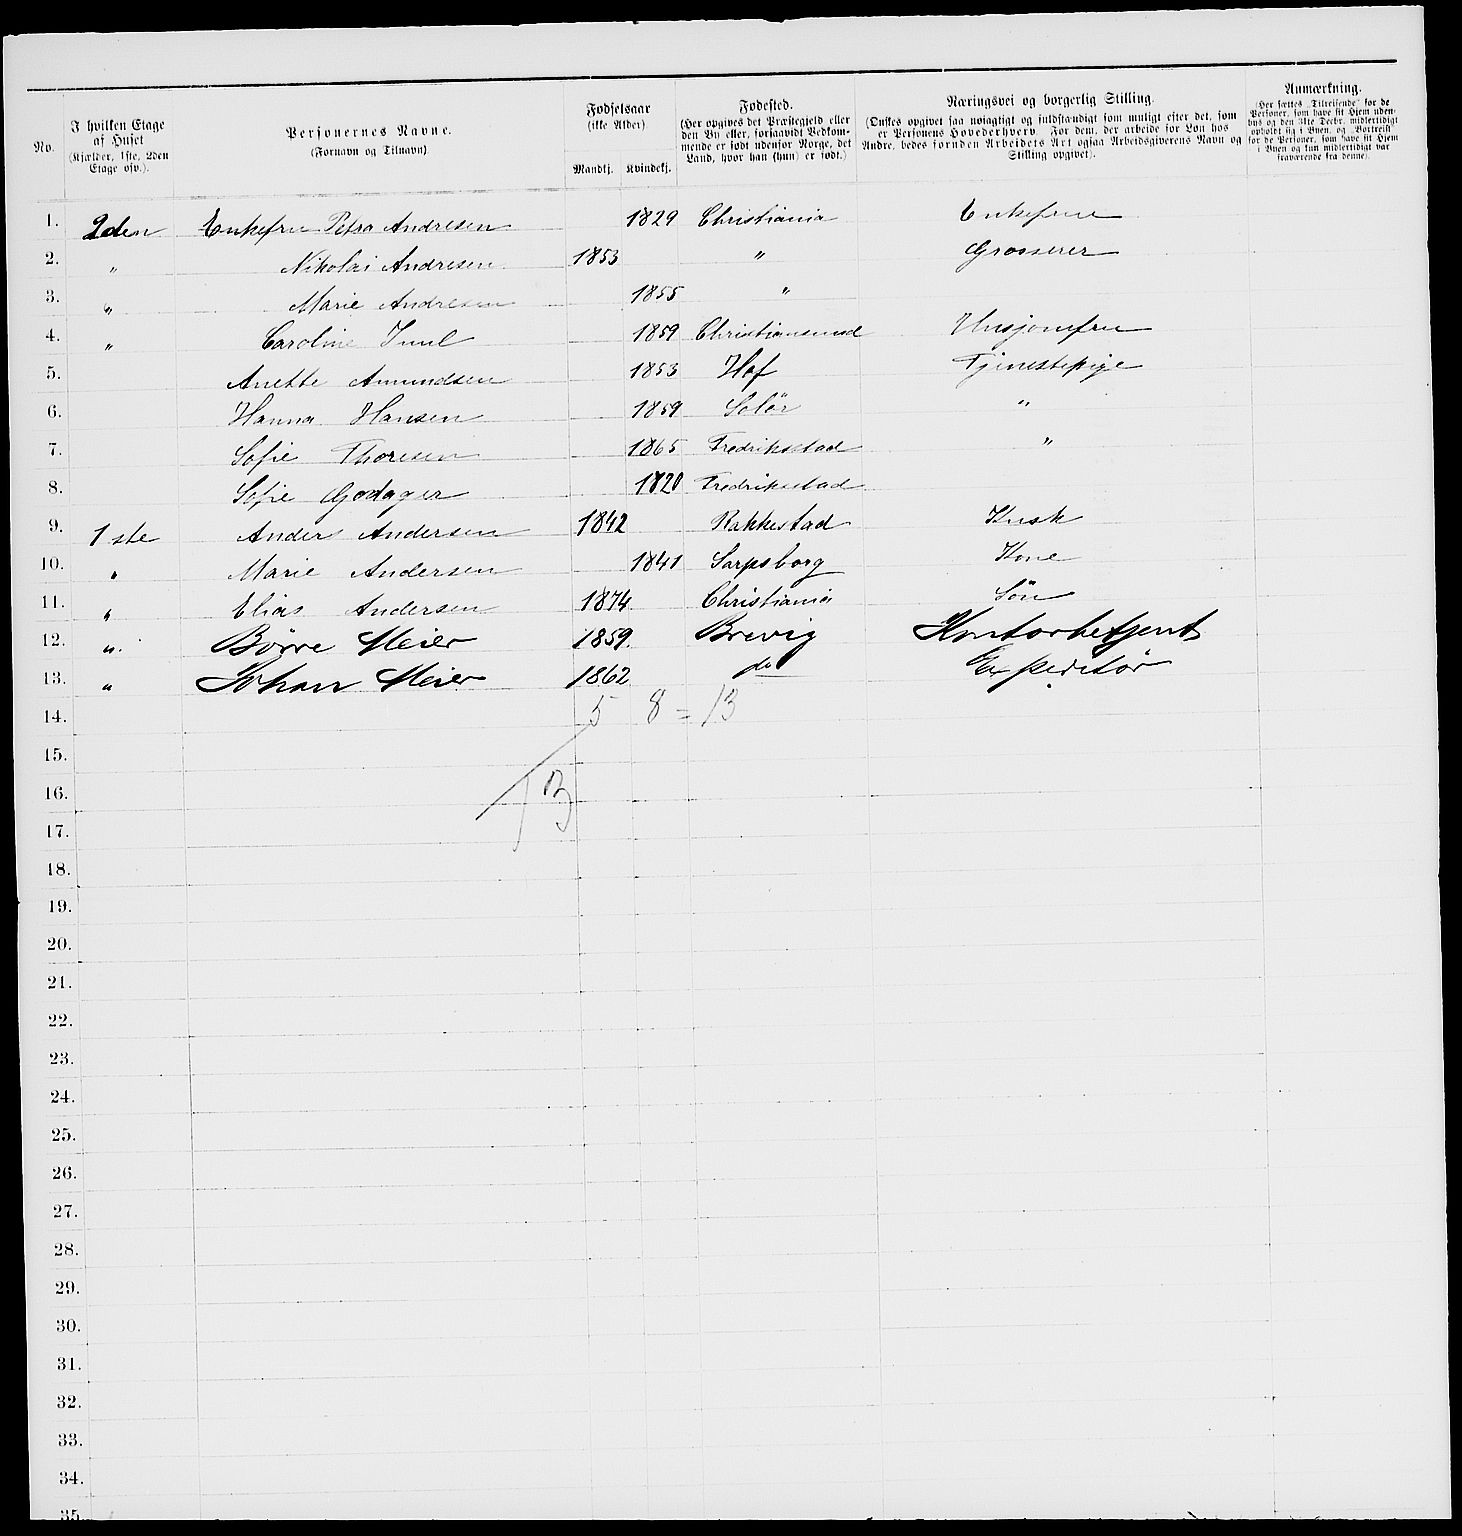 No.
I hvilken Etage af Huset (Kjælder, 1ste, 2den Etage osv.).
Personernes Navne. (Fornavn og Tilnavn)
Fødselsaar (ikke Alder)
Mandkj. Kvindekj.
Fødested. (Her opgives det Præstegjeld eller den By eller, forsaavidt Vedkommende er født udenfor Norge, det Land, hvor han (hun) er født.)
Næringsvei og borgerlig Stilling. (Ønskes opgivet saa nøiagtigt og fuldstændigt som muligt efter det, som er Personens Hovederhverv. For dem, der arbeide for Løn hos Andre, bedes foruden Arbeidets Art ogsaa Arbeidsgiverens Navn og Stilling opgivet).
Anmærkning. (Her sættes „Tilreisende" for de Personer, som have sit Hjem udenbys og den 31te Decbr. midlertidigt opholdt sig i Byen, og „Bortreist" for de Personer, som have sit Hjem i Byen og kun midlertidigt var fraværende fra denne).
1. 2den Enkefru Petra Andresen 1829 Christiania Enkefrue
2. " Nikolai Andresen 1853 " Grosserer
3. " Marie Andresen 1855 "
4. " Caroline Juul 1859 Christianssund Husjomfru
5. Anette Amundsen 1853 Hof Tjenestepige
6. Hanna Hansen 1859 Solör "
7. Sofie Thoresen 1865 Fredriksstad "
8. Sofie Godager 1820 Fredriksstad
9. 1ste Anders Andersen 1842 Rakkestad Kusk
10. " Marie Andersen 1841 Sarpsborg Kone
11. " Elias Andersen 1874. Christiania Sön
12. " Börre Meier 1859. Brevig Kontorbetjent
13. " Johan Meier 1862 do Expeditör
14. 5 8 = 13
15.
16. 13
17.
18.
19.
20.
21.
22.
23.
24.
25.
26.
27.
28.
29.
30.
31.
32.
33.
34.
35.